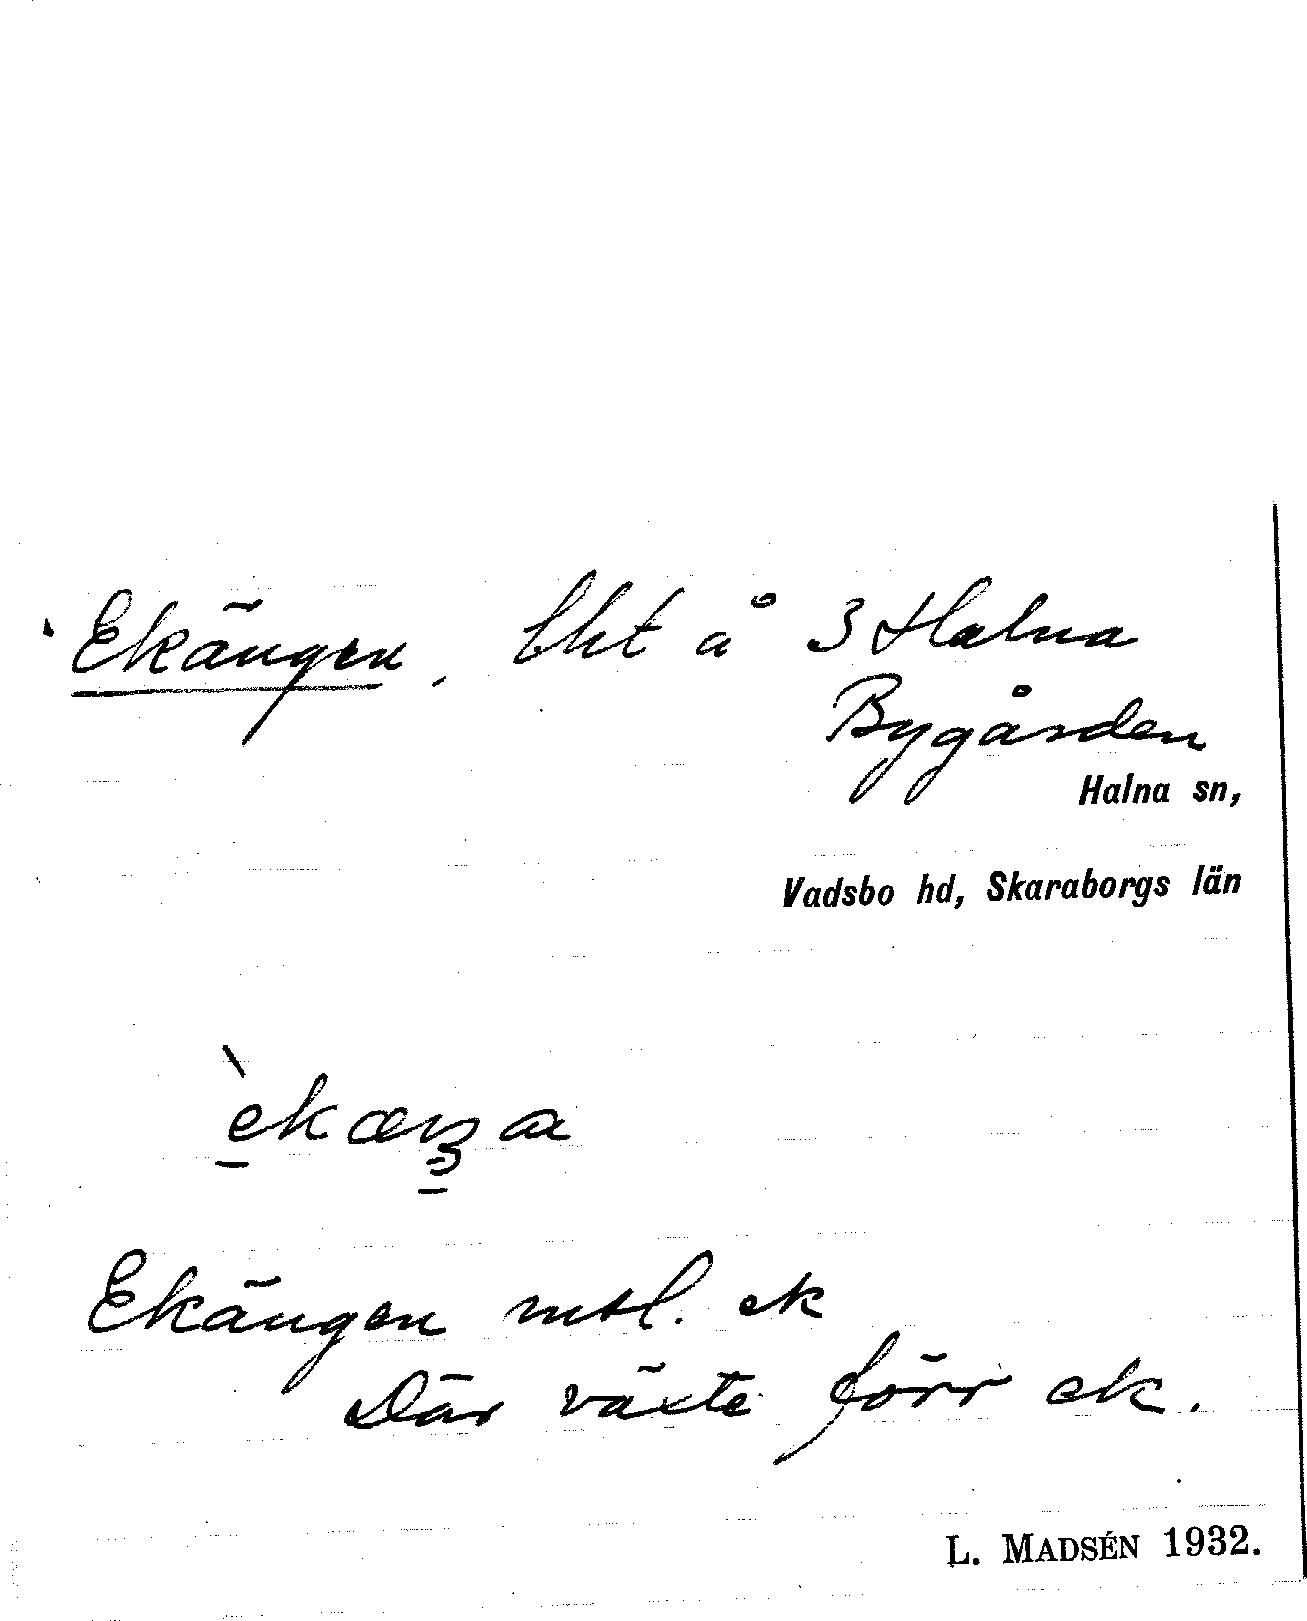 Ekängen, lht å 3 Halna
Bygården
Halna sn,
Vadsbo hd, Skaraborgs län
Ekängen mtl. ek
Där växte förr ek.
L. MADSÉN 1932.